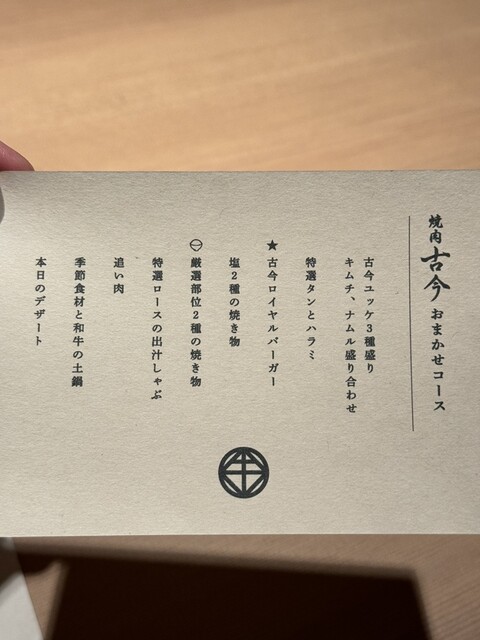 焼肉 古今 おまかせコース
古今ユッケ3種盛り
キムチ、ナムル盛り合わせ
特選タンとハラミ
★古今ロイヤルバーガー
塩2種の焼き物
厳選部位2種の焼き物
特選ロースの出汁しゃぶ
追い肉
季節食材と和牛の土鍋
本日のデザート